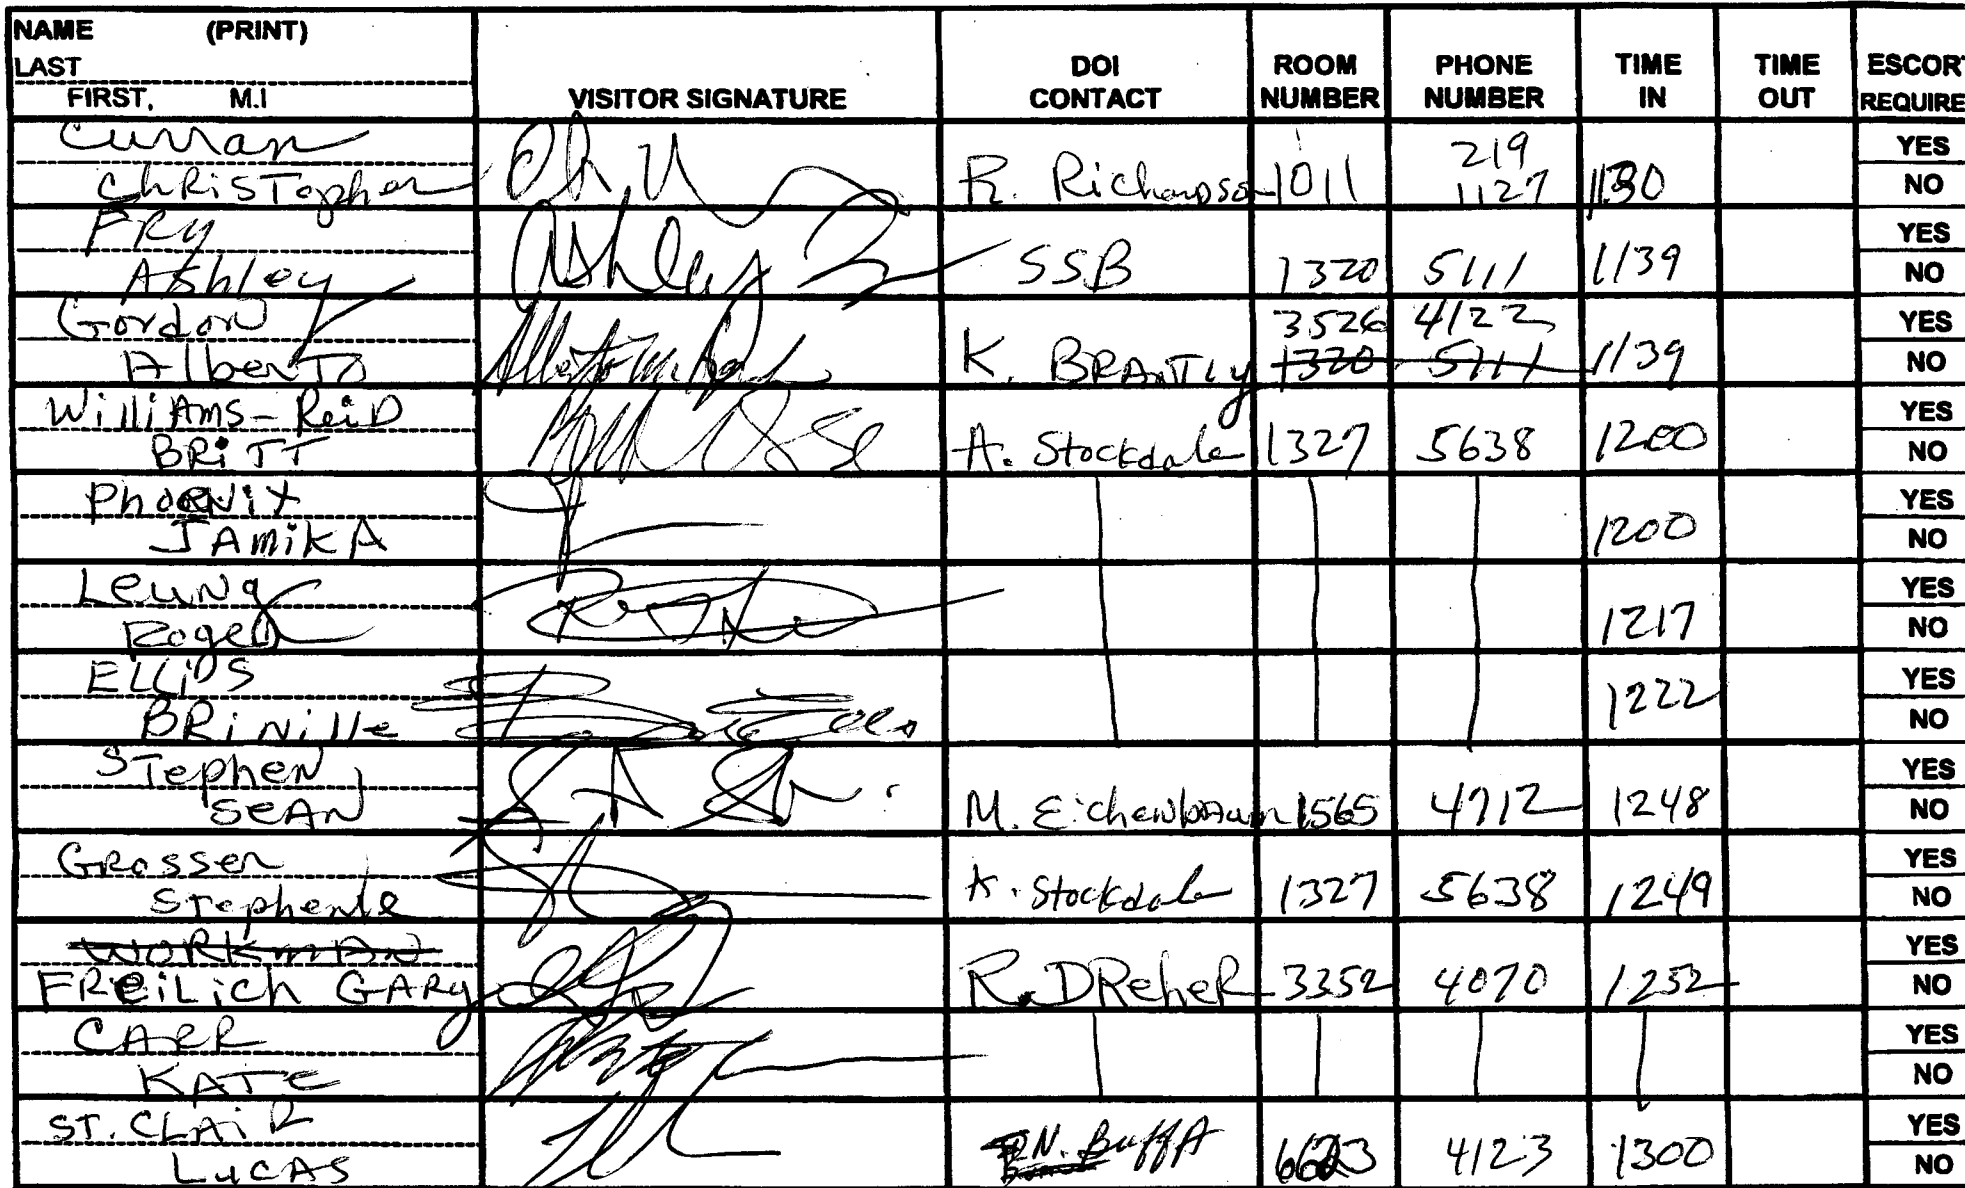 NAME (PRINT)
LAST
FIRST, M.I
VISITOR SIGNATURE
DOI CONTACT
ROOM NUMBER
PHONE NUMBER
TIME IN
TIME OUT
ESCORT REQUIRE
Curran
ChRiSTopher
R. Richardson 1011 219 1127 1130
YES
NO
FRy
Ashley
Ashley
SSB 1320 5111 1139
YES
NO
Gordon
Alberto
K. BRANTLy 3526 4122 1139
1320 5111
YES
NO
WilliAmS-ReiD
BRiTT
A. Stockdale 1327 5638 1200
YES
NO
PhoeNix
JAmikA
1200
YES
NO
LeuNg
Roger
1217
YES
NO
ELLiDS
BRiNille
1222
YES
NO
STephen
SEAN
M. Eichenbaum 1565 4712 1248
YES
NO
GRosser
Stephenie
A. Stockdale 1327 5638 1249
YES
NO
WORKmAN
FReiLich GARy
R. DReheR 3352 4070 1252
YES
NO
CARR
KATE
YES
NO
ST. CLAiR
LUCAS
N. BuffA 6623 4123 1300
YES
NO